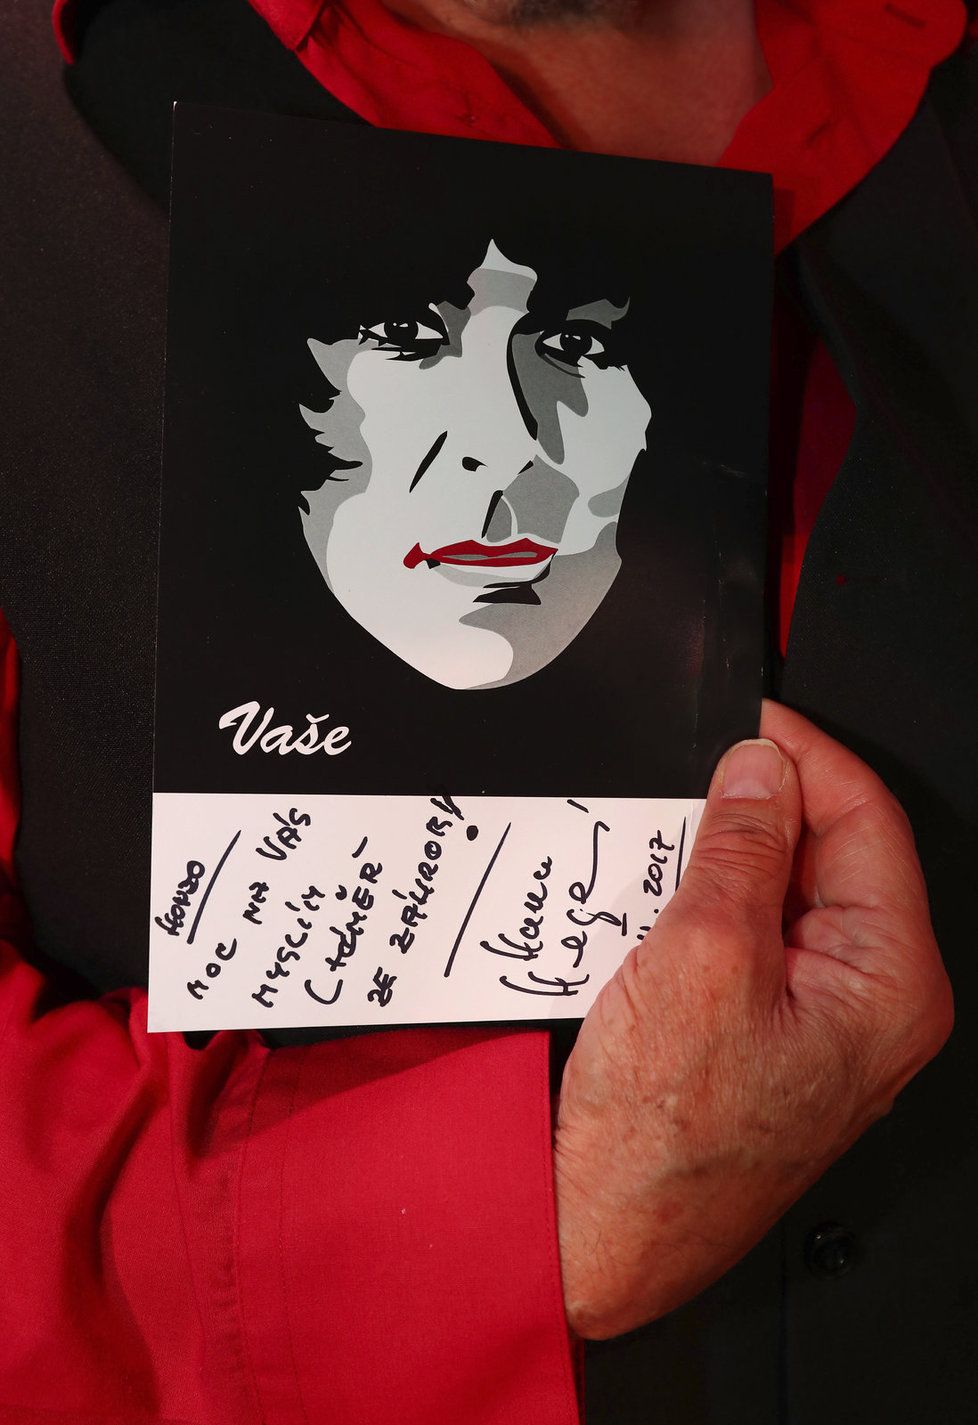 Vaše
HONZO
MOC NA VÁS
MYSLÍM
(TÉMĚŘ-
ZE ZÁHROBÍ!
Hana
Heger
2017